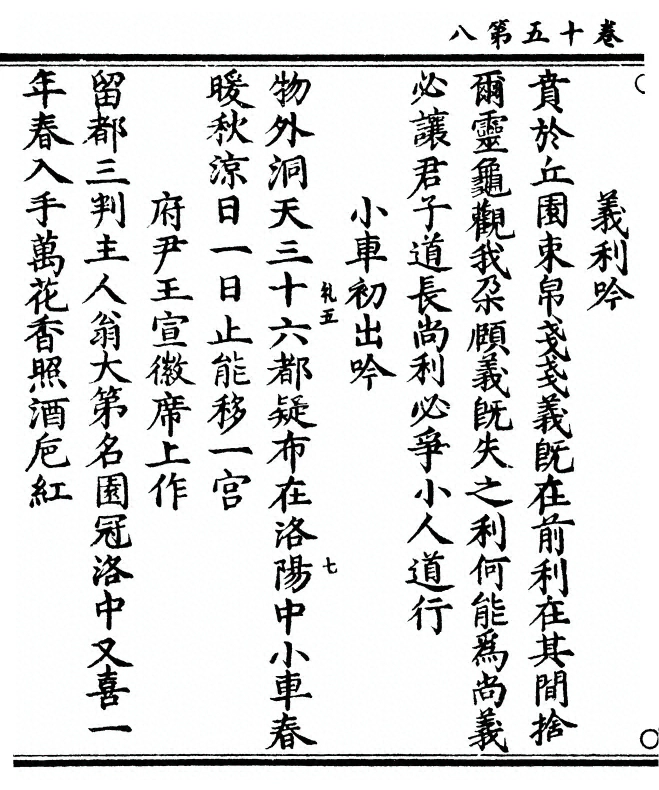 卷十五第八
義利吟
賁於丘園束帛戔戔義旣在前利在其間捨
爾靈龜觀我朶頤義旣失之利何能爲尚義
必讓君子道長尚利必爭小人道行
小車初出吟
物外洞天三十六都疑布在洛陽中小車春
礼五
七
暖秋涼日一日止能移一宮
府尹王宣徽席上作
留都三判主人翁大第名園冠洛中又喜一
年春入手萬花香照酒卮紅